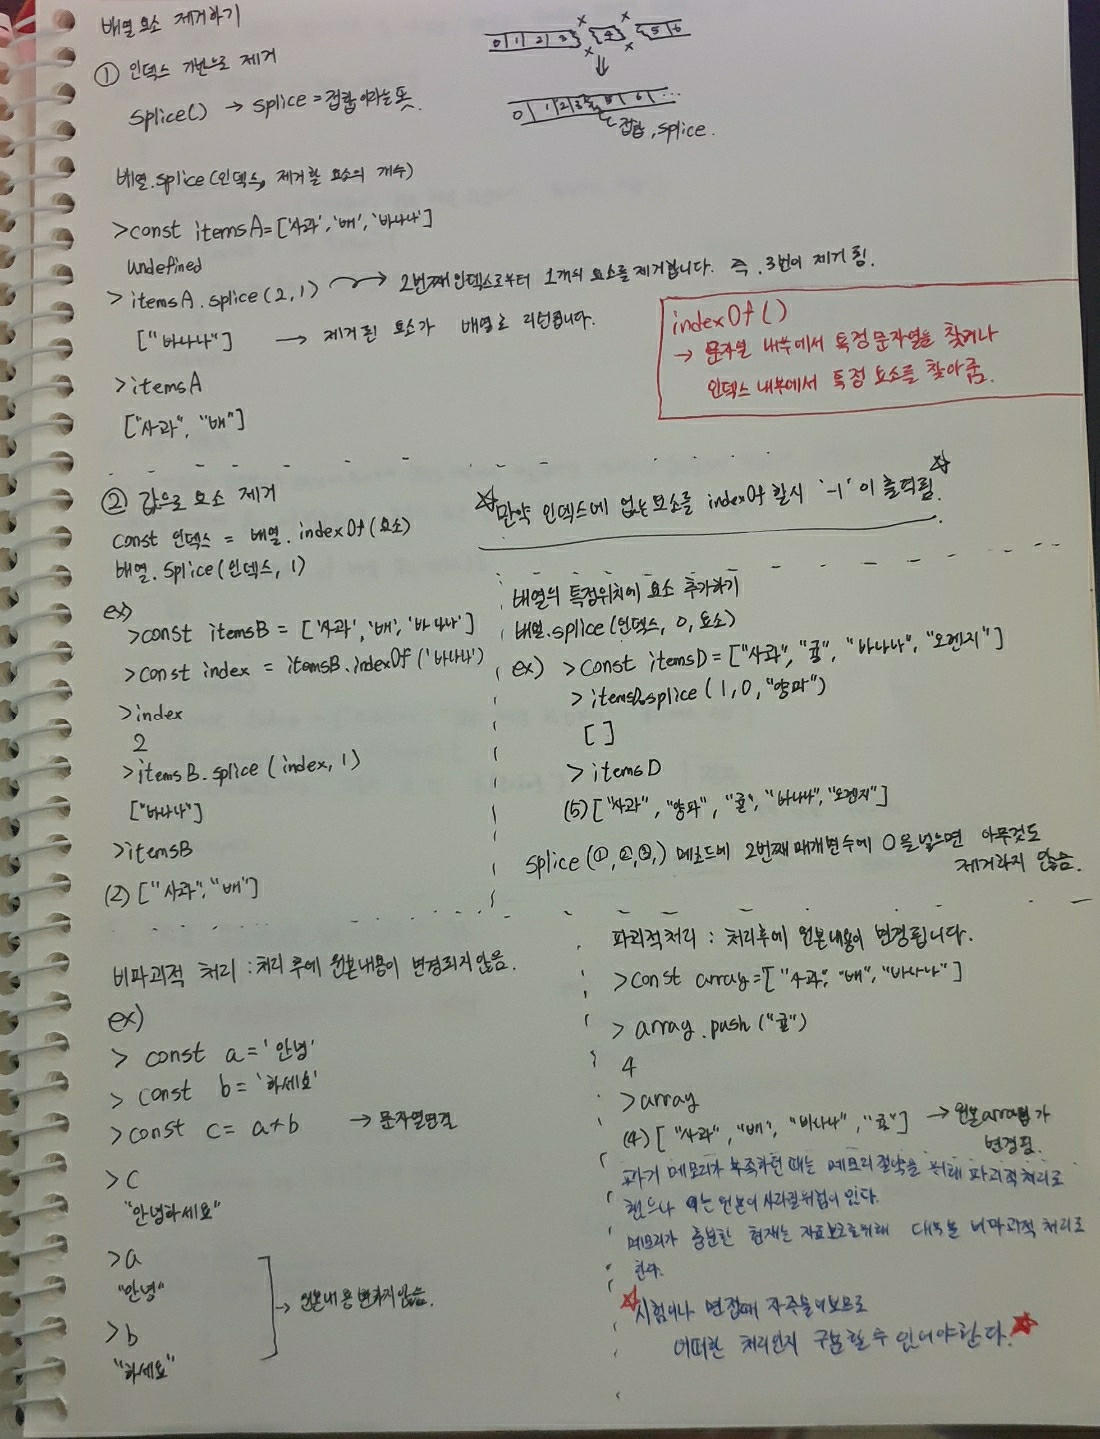 배열 요소 제거하기
① 인덱스 기반으로 제거
splice() → splice = 접합 이라는 뜻.
0 1 2 3 4 5 6
0 1 2 3 5 6 ...
접합, splice.
배열.splice(인덱스, 제거할 요소의 개수)
>const itemsA=['사과','배','바나나']
undefined
>itemsA.splice(2,1) → 2번째 인덱스로부터 1개의 요소를 제거합니다. 즉, 3번이 제거 됨.
["바나나"] → 제거된 요소가 배열로 리턴됩니다.
>itemsA
["사과", "배"]
indexOf()
→ 문자열 내부에서 특정 문자열을 찾거나
인덱스 내부에서 특정 요소를 찾아줌.
② 값으로 요소 제거
const 인덱스 = 배열.indexOf(요소)
배열.splice(인덱스, 1)
ex)
>const itemsB = ['사과','배','바나나']
>const index = itemsB.indexOf('바나나')
>index
2
>itemsB.splice(index, 1)
["바나나"]
>itemsB
(2) ["사과","배"]
☆만약 인덱스에 없는 요소를 indexOf 할시 '-1'이 출력됨.☆
배열의 특정위치에 요소 추가하기
배열.splice(인덱스, 0, 요소)
ex) >const itemsD=["사과","귤", "바나나","오렌지"]
>itemsD.splice(1,0,"양파")
[]
>itemsD
(5)["사과", "양파", "귤", "바나나","오렌지"]
splice(①,②,③,) 메소드에 2번째 매개변수에 0을 넣으면 아무것도
제거하지 않음.
비파괴적 처리 : 처리 후에 원본내용이 변경되지 않음.
ex)
> const a='안녕'
> const b='하세요'
>const c= a+b → 문자열연결
>c
"안녕하세요"
>a
"안녕"
>b
"하세요"
→ 원본내용 변하지않음.
파괴적처리 : 처리후에 원본내용이 변경됩니다.
>const array=["사과", "배","바나나"]
> array.push("귤")
4
>array
(4)["사과","배", "바나나","귤"] → 원본array가
변경됨.
과거 메모리가 부족하던 때는 메모리 절약을 위해 파괴적처리로
했으나 이는 원본이 사라질위험이 있다.
메모리가 충분한 현재는 자료보호를위해 대부분 비파괴적 처리로
한다.
☆시험이나 면접때 자주물어보므로
어떠한 처리인지 구분할 수 있어야한다.★